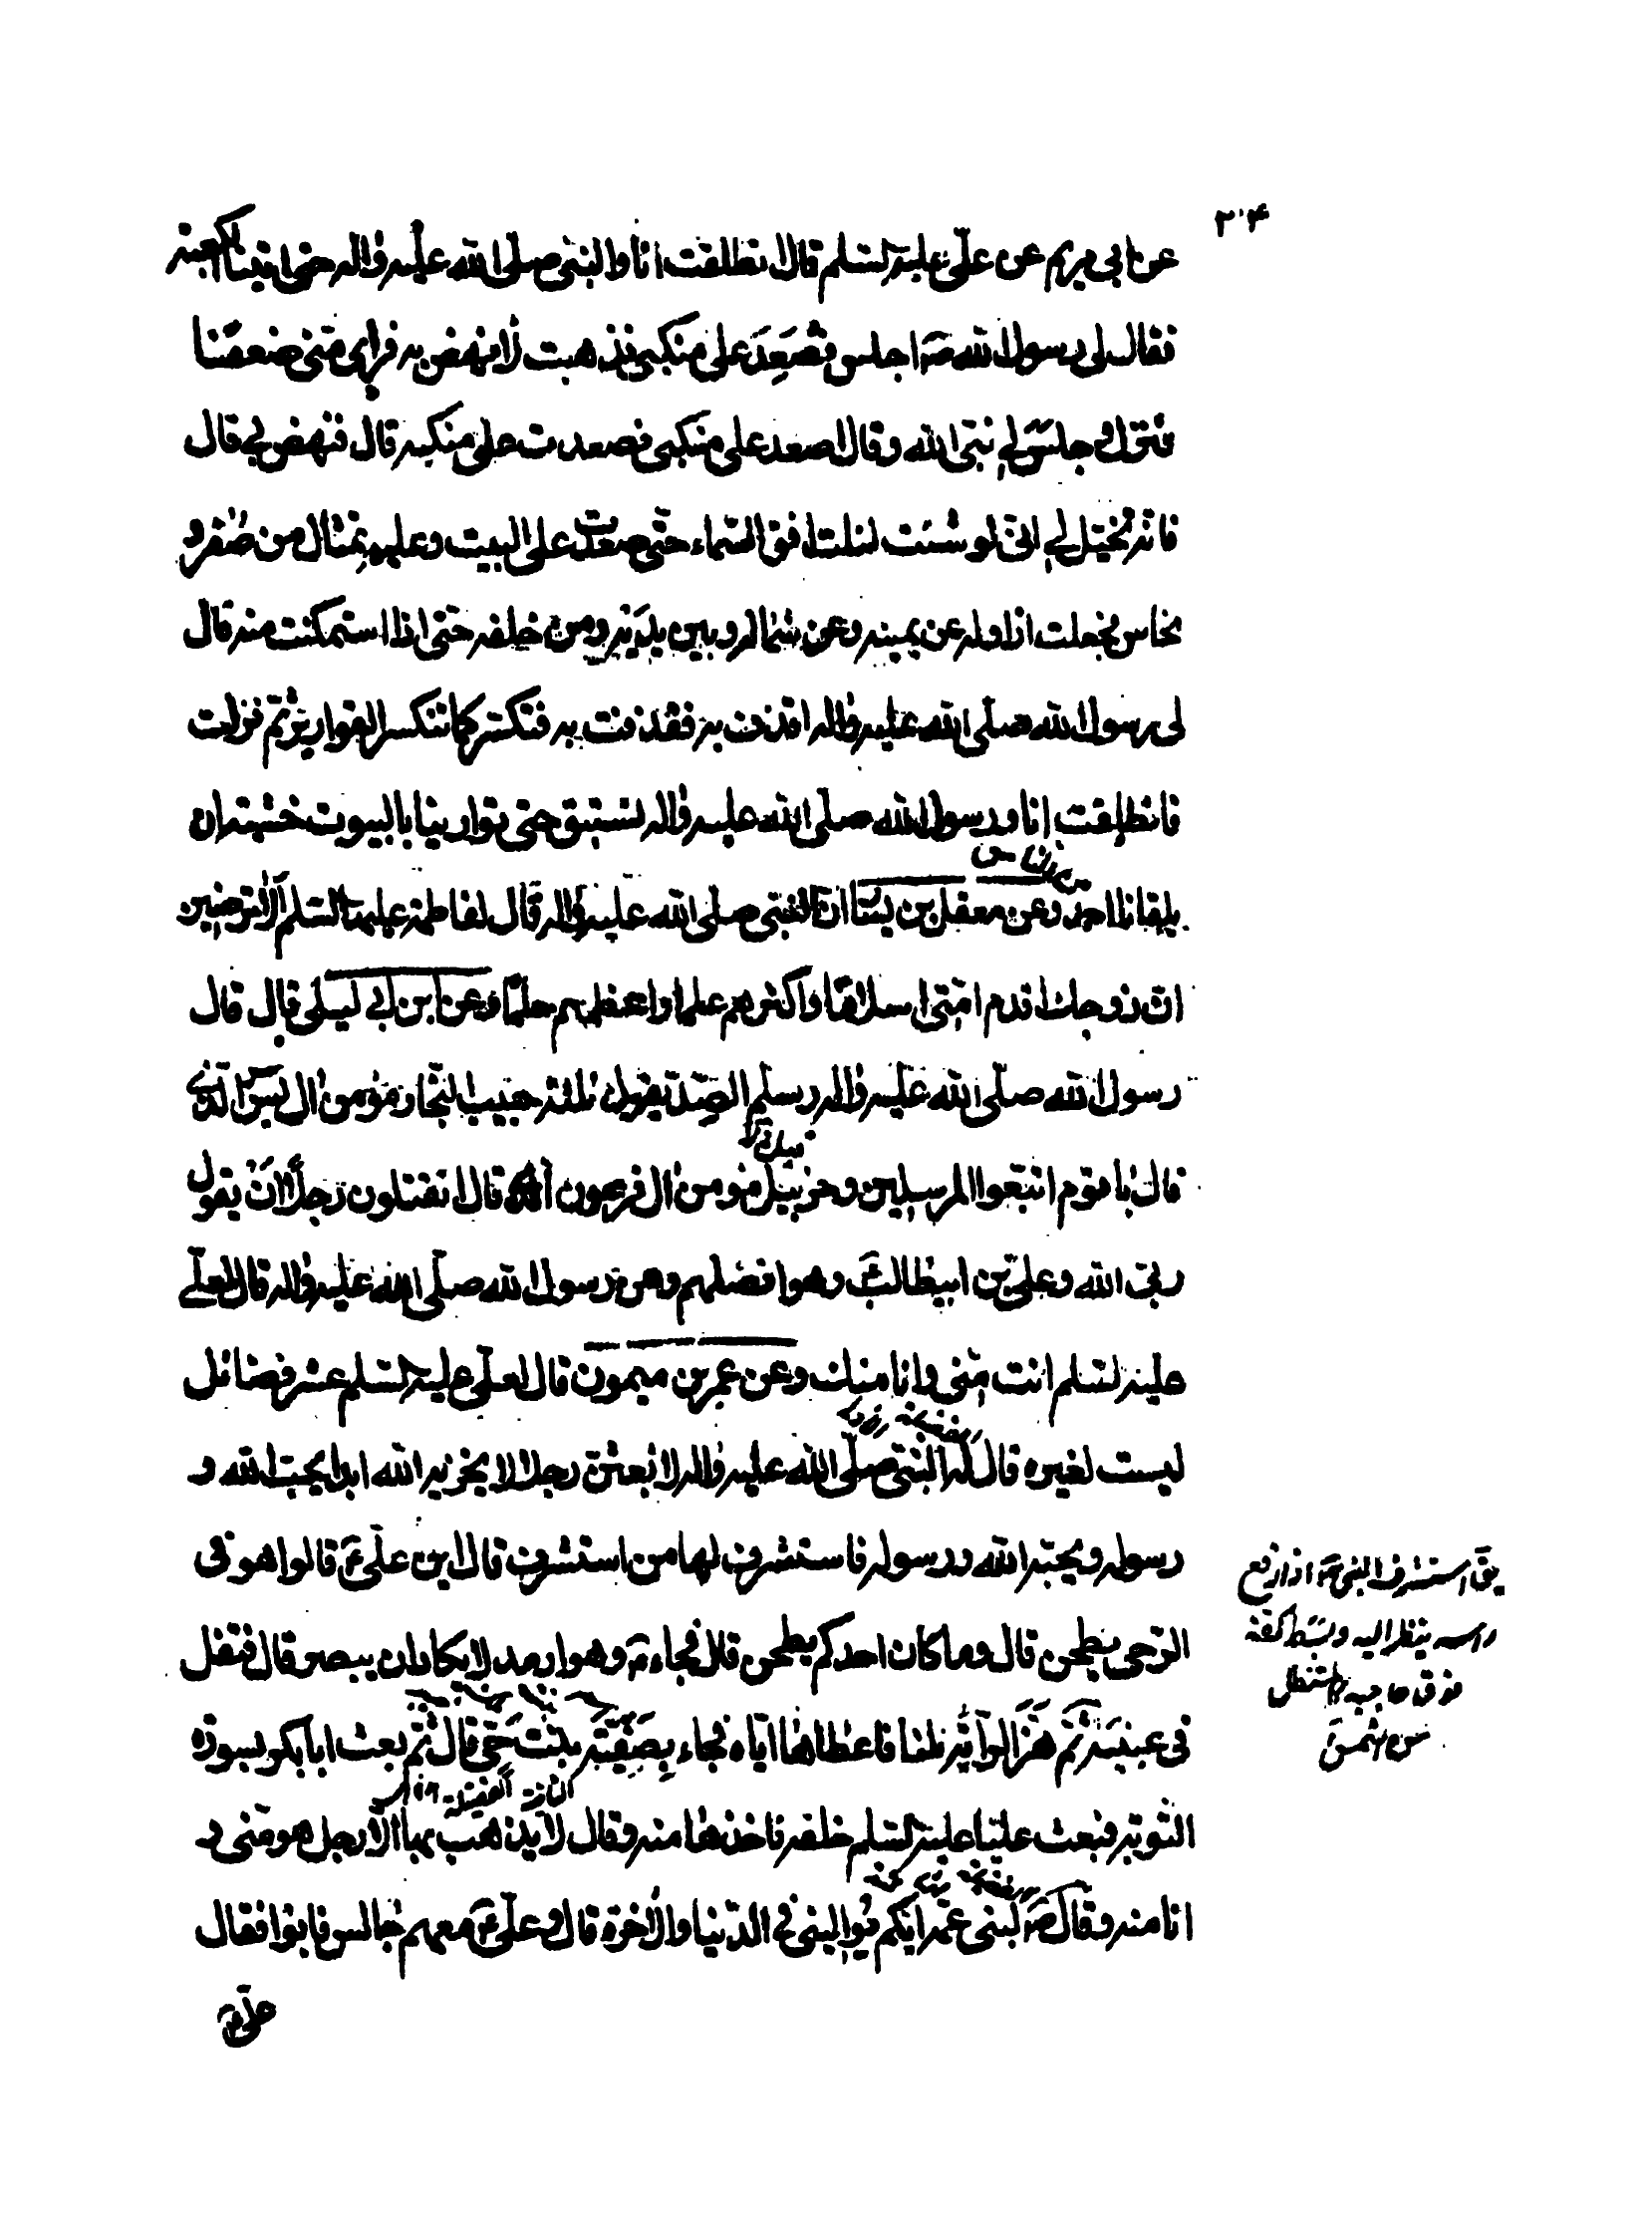 ٣٠٤
عن ابي مريم عن علي عليه السلم قال انطلقت انا والنبي صلى الله عليه واله حتى اتينا الكعبة
فقال لي رسول الله صۤ اجلس فصعد على منكبي فذهبت لانهض به فراى مني ضعفا
فنزل وجلس لي نبي الله وقال اصعد على منكبي فصعدت على منكبه قال فنهض بي قال
فانه يخيل لي اني لو شئت لنلت افق السماء حتى صعدت على البيت وعليه تمثال من صفر و
نحاس فجعلت ازاوله عن يمينه وعن شماله وبين يديه ومن خلفه حتى اذا استمكنت منه قال
لي رسول الله صلى الله عليه واله اقذف به فقذفت به فتكسر كما تنكسر القوارير ثم نزلت
فانطلقت انا ورسول الله صلى الله عليه واله نستبق حتى توارينا بالبيوت خشية ان
يلقانا احد من الناس وعن معقل بن يسار ان النبي صلى الله عليه واله قال لفاطمة عليها السلم الا ترضين
ان زوجك اقدم امتي اسلاما واكثرهم علما واعظمهم حلما وعن ابن ابي ليلى قال قال
رسول الله صلى الله عليه واله وسلم الصديقون ثلثة حبيب النجار مؤمن ال يس الذي
قال يا قوم اتبعوا المرسلين وحزبيل مؤمن ال فرعون الذي قال اتقتلون رجلا ان يقول
ربي الله وعلي بن ابيطالب وهو افضلهم وعن رسول الله صلى الله عليه واله قال لعلي
عليه السلم انت مني وانا منك وعن عمر بن ميمون قال لعلي عليه السلم عشر فضائل
ليست لغيره قال له النبي صلى الله عليه واله لابعثن رجلا لا يخزيه الله ابدا يحب الله و
رسوله ويحبه الله ورسوله فاستشرف لها من استشرف قال اين علي عۤ قالوا هو في
الرحى يطحن قال وما كان احدكم يطحن قال فجاءه وهو ارمد لا يكاد ان يبصر قال فتفل
في عينيه ثم هز الراية ثلثا فاعطاها اياه فجاء بصفية بنت حي قال ثم بعث ابا بكر بسورة
التوبة فبعث عليا عليه السلم خلفه فاخذها منه وقال لا يذهب بها الا رجل هو مني و
انا منه وقال صۤ لبني عمه ايكم يواليني في الدنيا والاخرة قال وعلي عۤ معهم جالس فابوا فقال
علي عۤ
يق استشرف النبي صۤ اذا رفع
راسه ينظر اليه وبسط كفه
فوق حاجبه كالمستظل
من الشمس